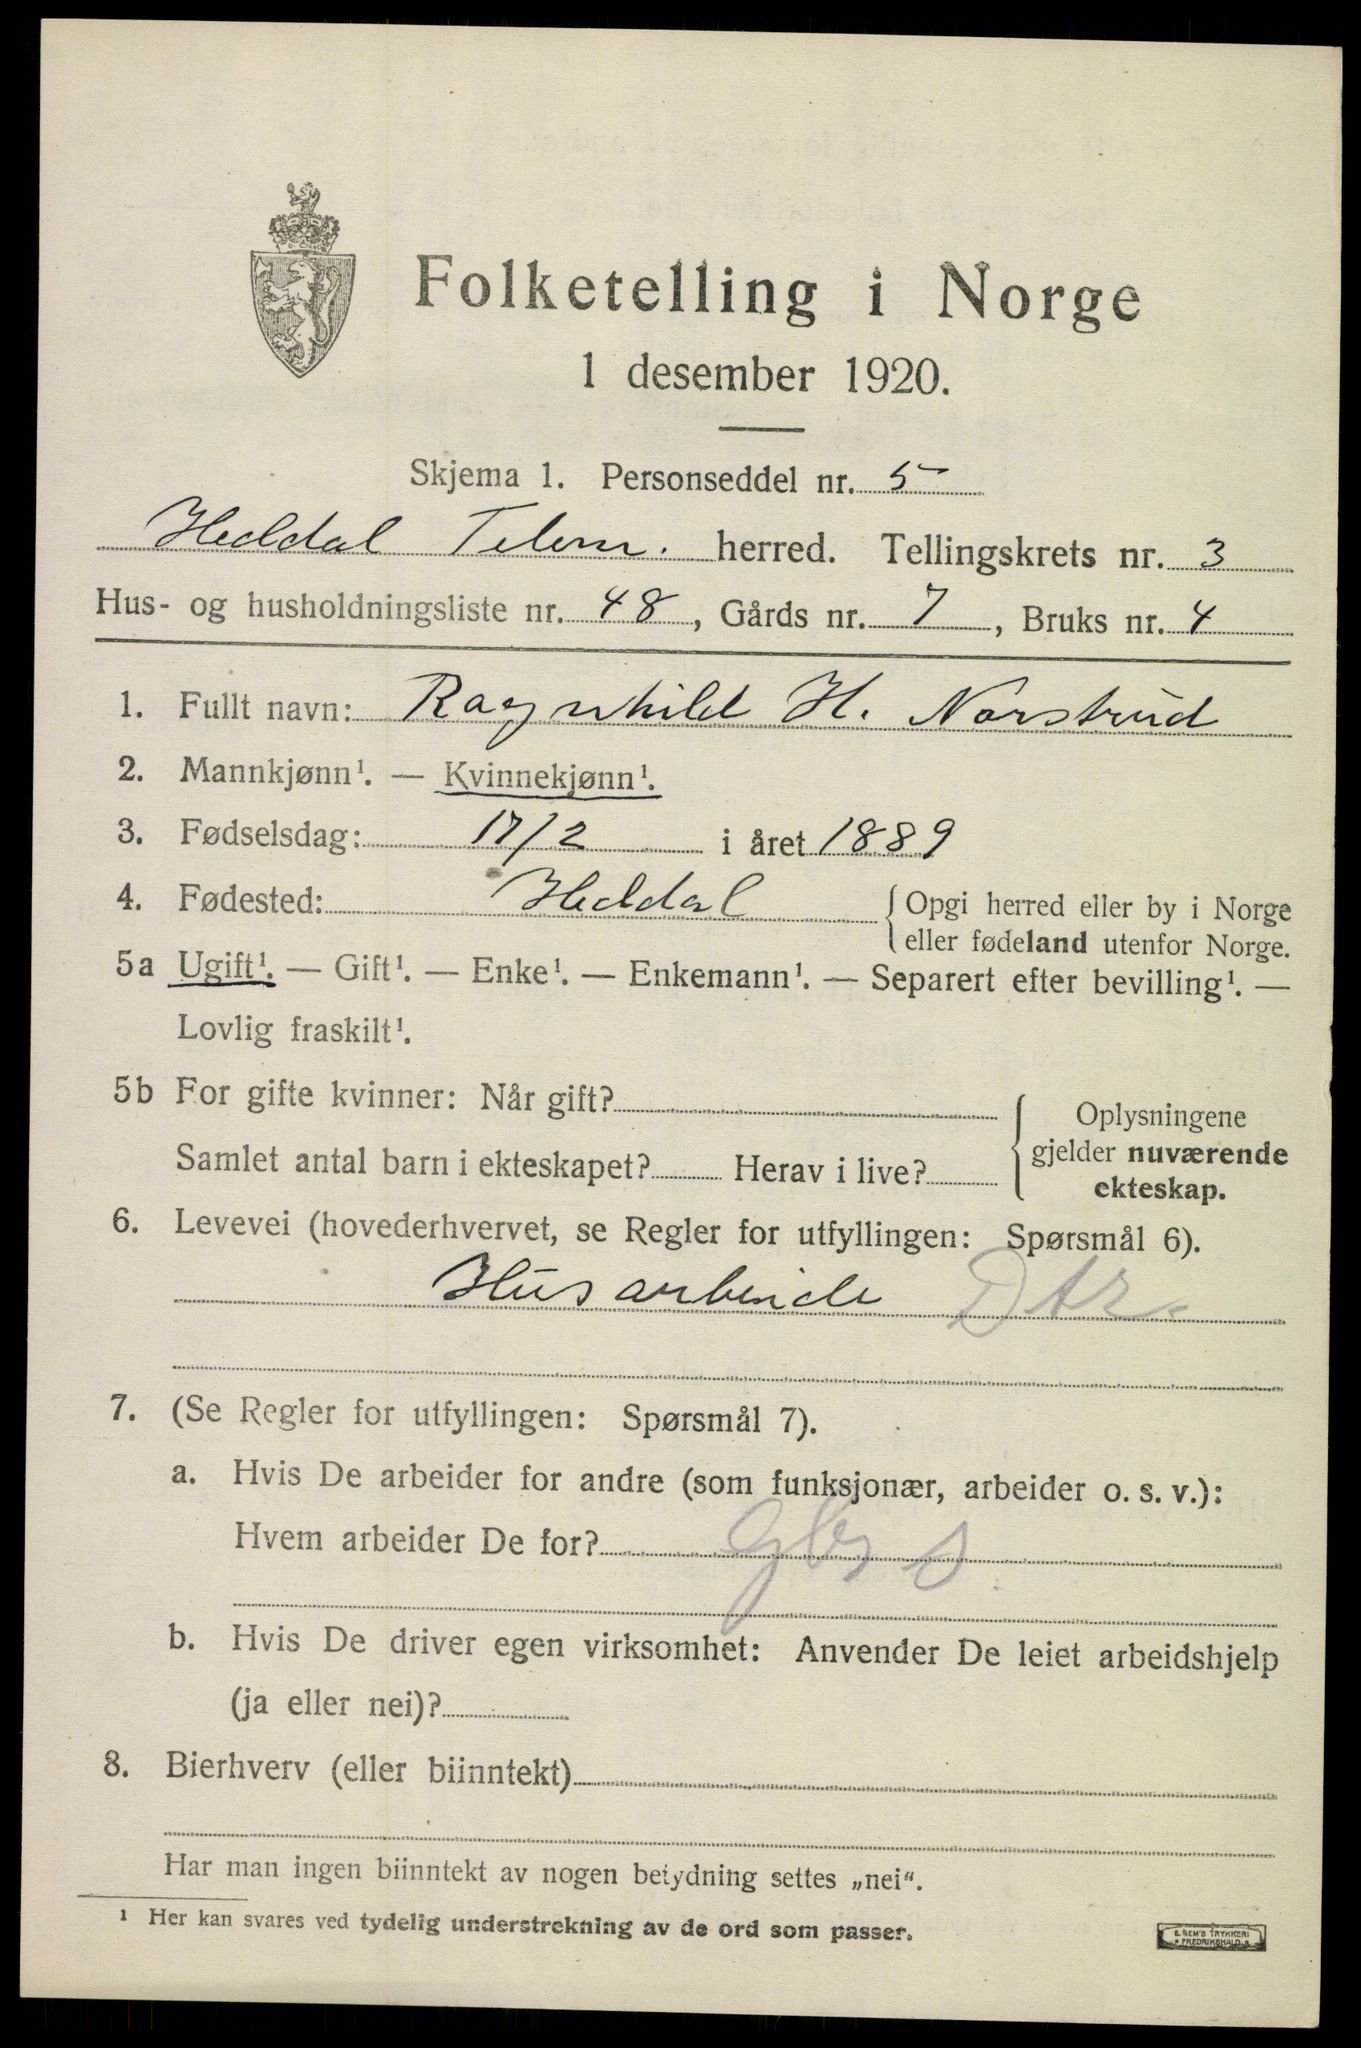 Folketelling i Norge
1 desember 1920.
Skjema 1. Personseddel nr. 5
Heddal Telem. herred. Tellingskrets nr. 3
Hus- og husholdningsliste nr. 48, Gårds nr. 7, Bruks nr. 4
1. Fullt navn: Ragnhild H. Norstrud
2. Mannkjønn¹. — Kvinnekjønn¹.
3. Fødselsdag: 17/2 i året 1889
4. Fødested: Heddal { Opgi herred eller by i Norge
eller fødeland utenfor Norge.
5a Ugift¹. — Gift¹. — Enke¹. — Enkemann¹. — Separert efter bevilling¹. —
Lovlig fraskilt¹.
5b For gifte kvinner: Når gift?
Samlet antal barn i ekteskapet? Herav i live?
Oplysningene
gjelder nuværende
ekteskap.
6. Levevei (hovederhvervet, se Regler for utfyllingen: Spørsmål 6).
Husarbeide
7. (Se Regler for utfyllingen: Spørsmål 7).
a. Hvis De arbeider for andre (som funksjonær, arbeider o. s. v.):
Hvem arbeider De for?
b. Hvis De driver egen virksomhet: Anvender De leiet arbeidshjelp
(ja eller nei)?
8. Bierhverv (eller biinntekt)
Har man ingen biinntekt av nogen betydning settes „nei“.
¹ Her kan svares ved tydelig understrekning av de ord som passer.
E. SEM'S TRYKKERI
FREDRIKSHALD